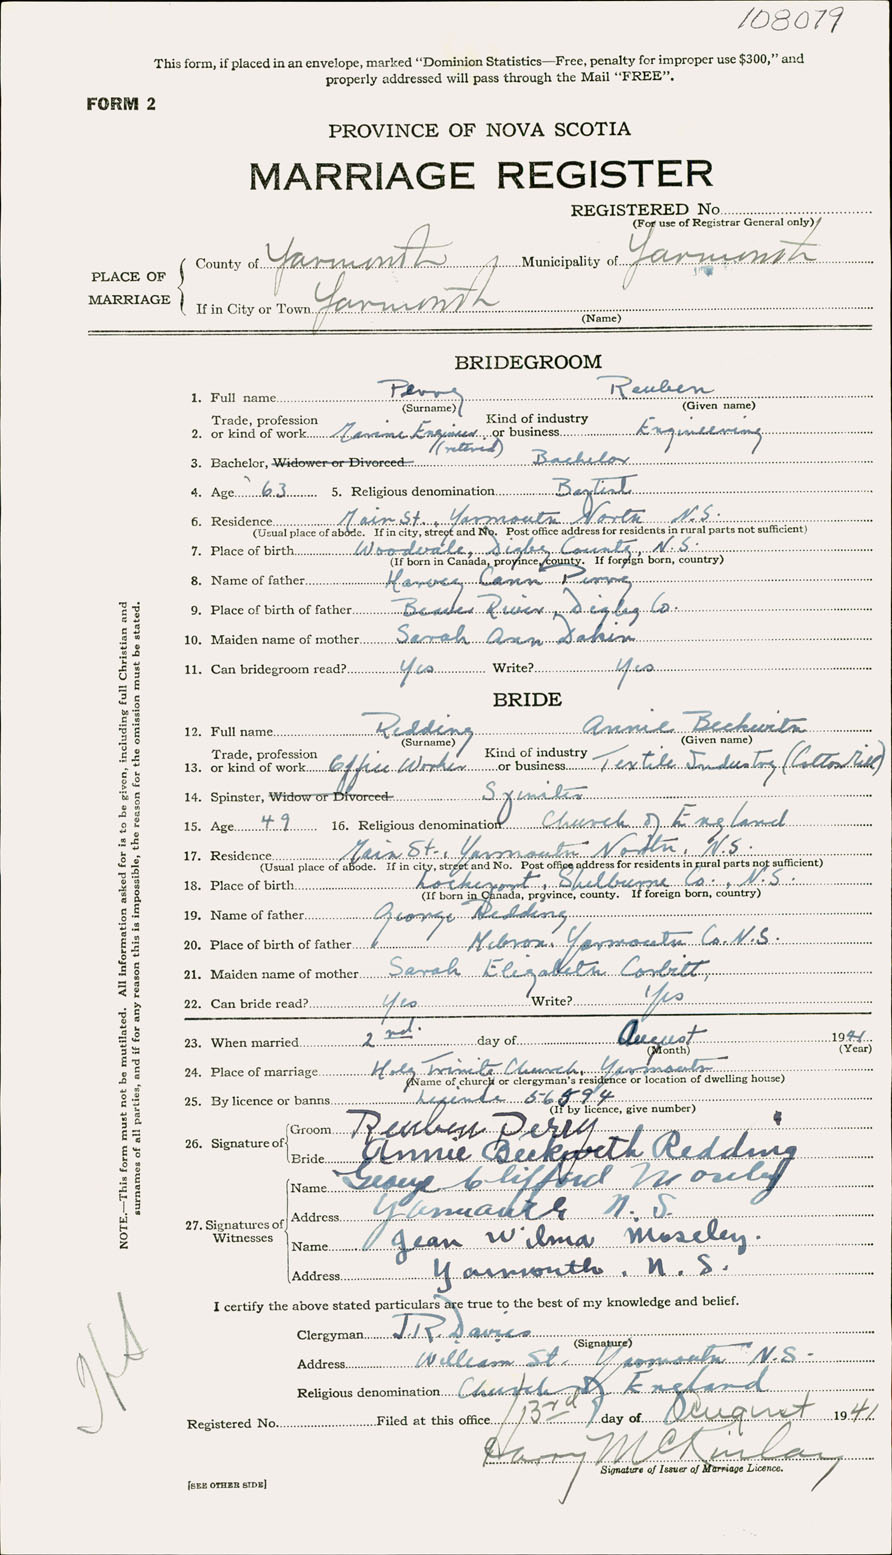 108079
This form, if placed in an envelope, marked "Dominion Statistics—Free, penalty for improper use $300," and
properly addressed will pass through the Mail "FREE".
FORM 2
PROVINCE OF NOVA SCOTIA
MARRIAGE REGISTER
REGISTERED No.
(For use of Registrar General only)
PLACE OF MARRIAGE
County of Yarmouth Municipality of Yarmouth
If in City or Town Yarmouth
(Name)
BRIDEGROOM
1. Full name Perry Reuben
(Surname) (Given name)
Trade, profession Kind of industry
2. or kind of work Marine Engineer or business Engineering
(retired)
3. Bachelor, Widower or Divorced Bachelor
4. Age 63 5. Religious denomination Baptist
6. Residence Main St., Yarmouth North N.S.
(Usual place of abode. If in city, street and No. Post office address for residents in rural parts not sufficient)
7. Place of birth Woodvale, Digby County, N.S.
(If born in Canada, province, county. If foreign born, country)
8. Name of father Harvey Cann Perry
9. Place of birth of father Beaver River, Digby Co.
10. Maiden name of mother Sarah Ann Dakin
11. Can bridegroom read? Yes Write? Yes
BRIDE
12. Full name Redding Annie Beckwith
(Surname) (Given name)
Trade, profession Kind of industry
13. or kind of work Office Worker or business Textile Industry (Cotton Mill)
14. Spinster, Widow or Divorced Spinster
15. Age 49 16. Religious denomination Church of England
17. Residence Main St., Yarmouth North, N.S.
(Usual place of abode. If in city, street and No. Post office address for residents in rural parts not sufficient)
18. Place of birth Lockeport, Shelburne Co., N.S.
(If born in Canada, province, county. If foreign born, country)
19. Name of father George Redding
20. Place of birth of father Hebron, Yarmouth Co. N.S.
21. Maiden name of mother Sarah Elizabeth Corbitt,
22. Can bride read? Yes Write? Yes
23. When married 2nd. day of August 1941
(Month) (Year)
24. Place of marriage Holy Trinity Church, Yarmouth
(Name of church or clergyman's residence or location of dwelling house)
25. By licence or banns Licence 56594
(If by licence, give number)
26. Signature of
Groom Reuben Perry
Bride Annie Beckwith Redding
27. Signatures of Witnesses
Name George Clifford Mosely
Address Yarmouth N. S.
Name Jean Wilma Moseley.
Address Yarmouth. N. S.
I certify the above stated particulars are true to the best of my knowledge and belief.
Clergyman J.R. Davies
(Signature)
Address William St. Yarmouth N.S.
Religious denomination Church of England
Registered No. Filed at this office 13rd day of August 1941
Harry McKinlay
Signature of Issuer of Marriage Licence.
[SEE OTHER SIDE]
NOTE.—This form must not be mutilated. All information asked for is to be given, including full Christian and
surnames of all parties, and if for any reason this is impossible, the reason for the omission must be stated.